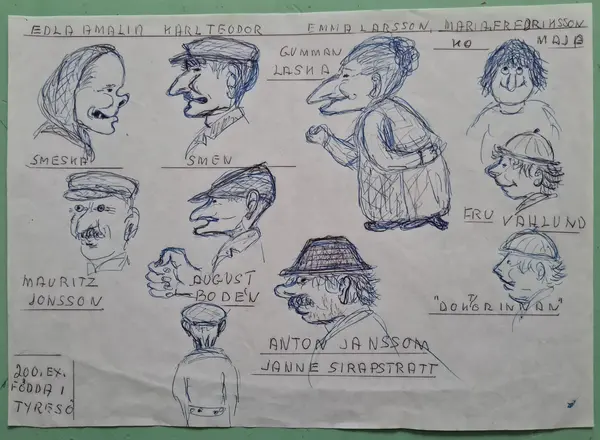 EDLA AMALIA KARL TEODOR EMMA LARSSON, MARIA FREDRIKSSON
KO MAJA
GUMMAN
LASKA
SMESKA SMEN
FRU VAHLUND
MAURITZ
JONSSON
AUGUST
BODÉN
"DOKTORINNAN"
ANTON JANSSON
JANNE SIRAPSTRATT
200. EX.
FÖDDA I
TYRESÖ